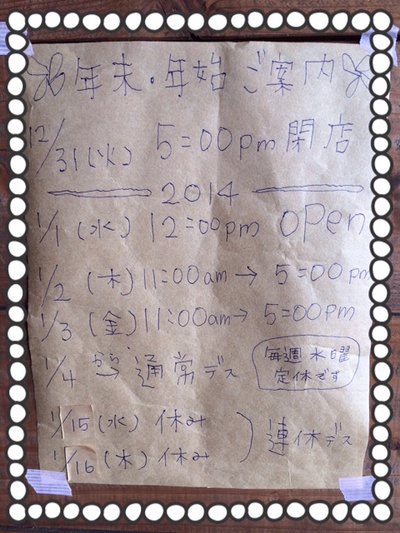 年末・年始ご案内
12/31(火) 5:00pm閉店
2014
1/1(水) 12:00pm open
1/2(木) 11:00am→5:00pm
1/3(金) 11:00am→5:00pm
1/4から→通常デス
毎週水曜
定休です
1/15(水)休み
1/16(木)休み
連休デス